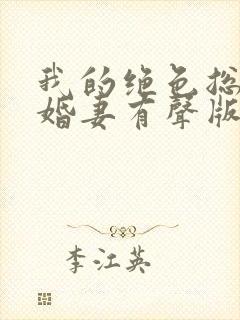 我的绝色总
婚妻有聲版
李江英